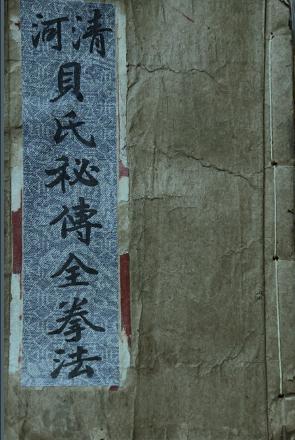 清河
貝氏秘傳全拳法